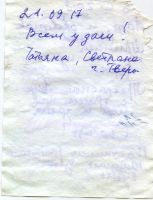 21.09.17
Всем удачи!
Татьяна, Светлана
г. Тверь